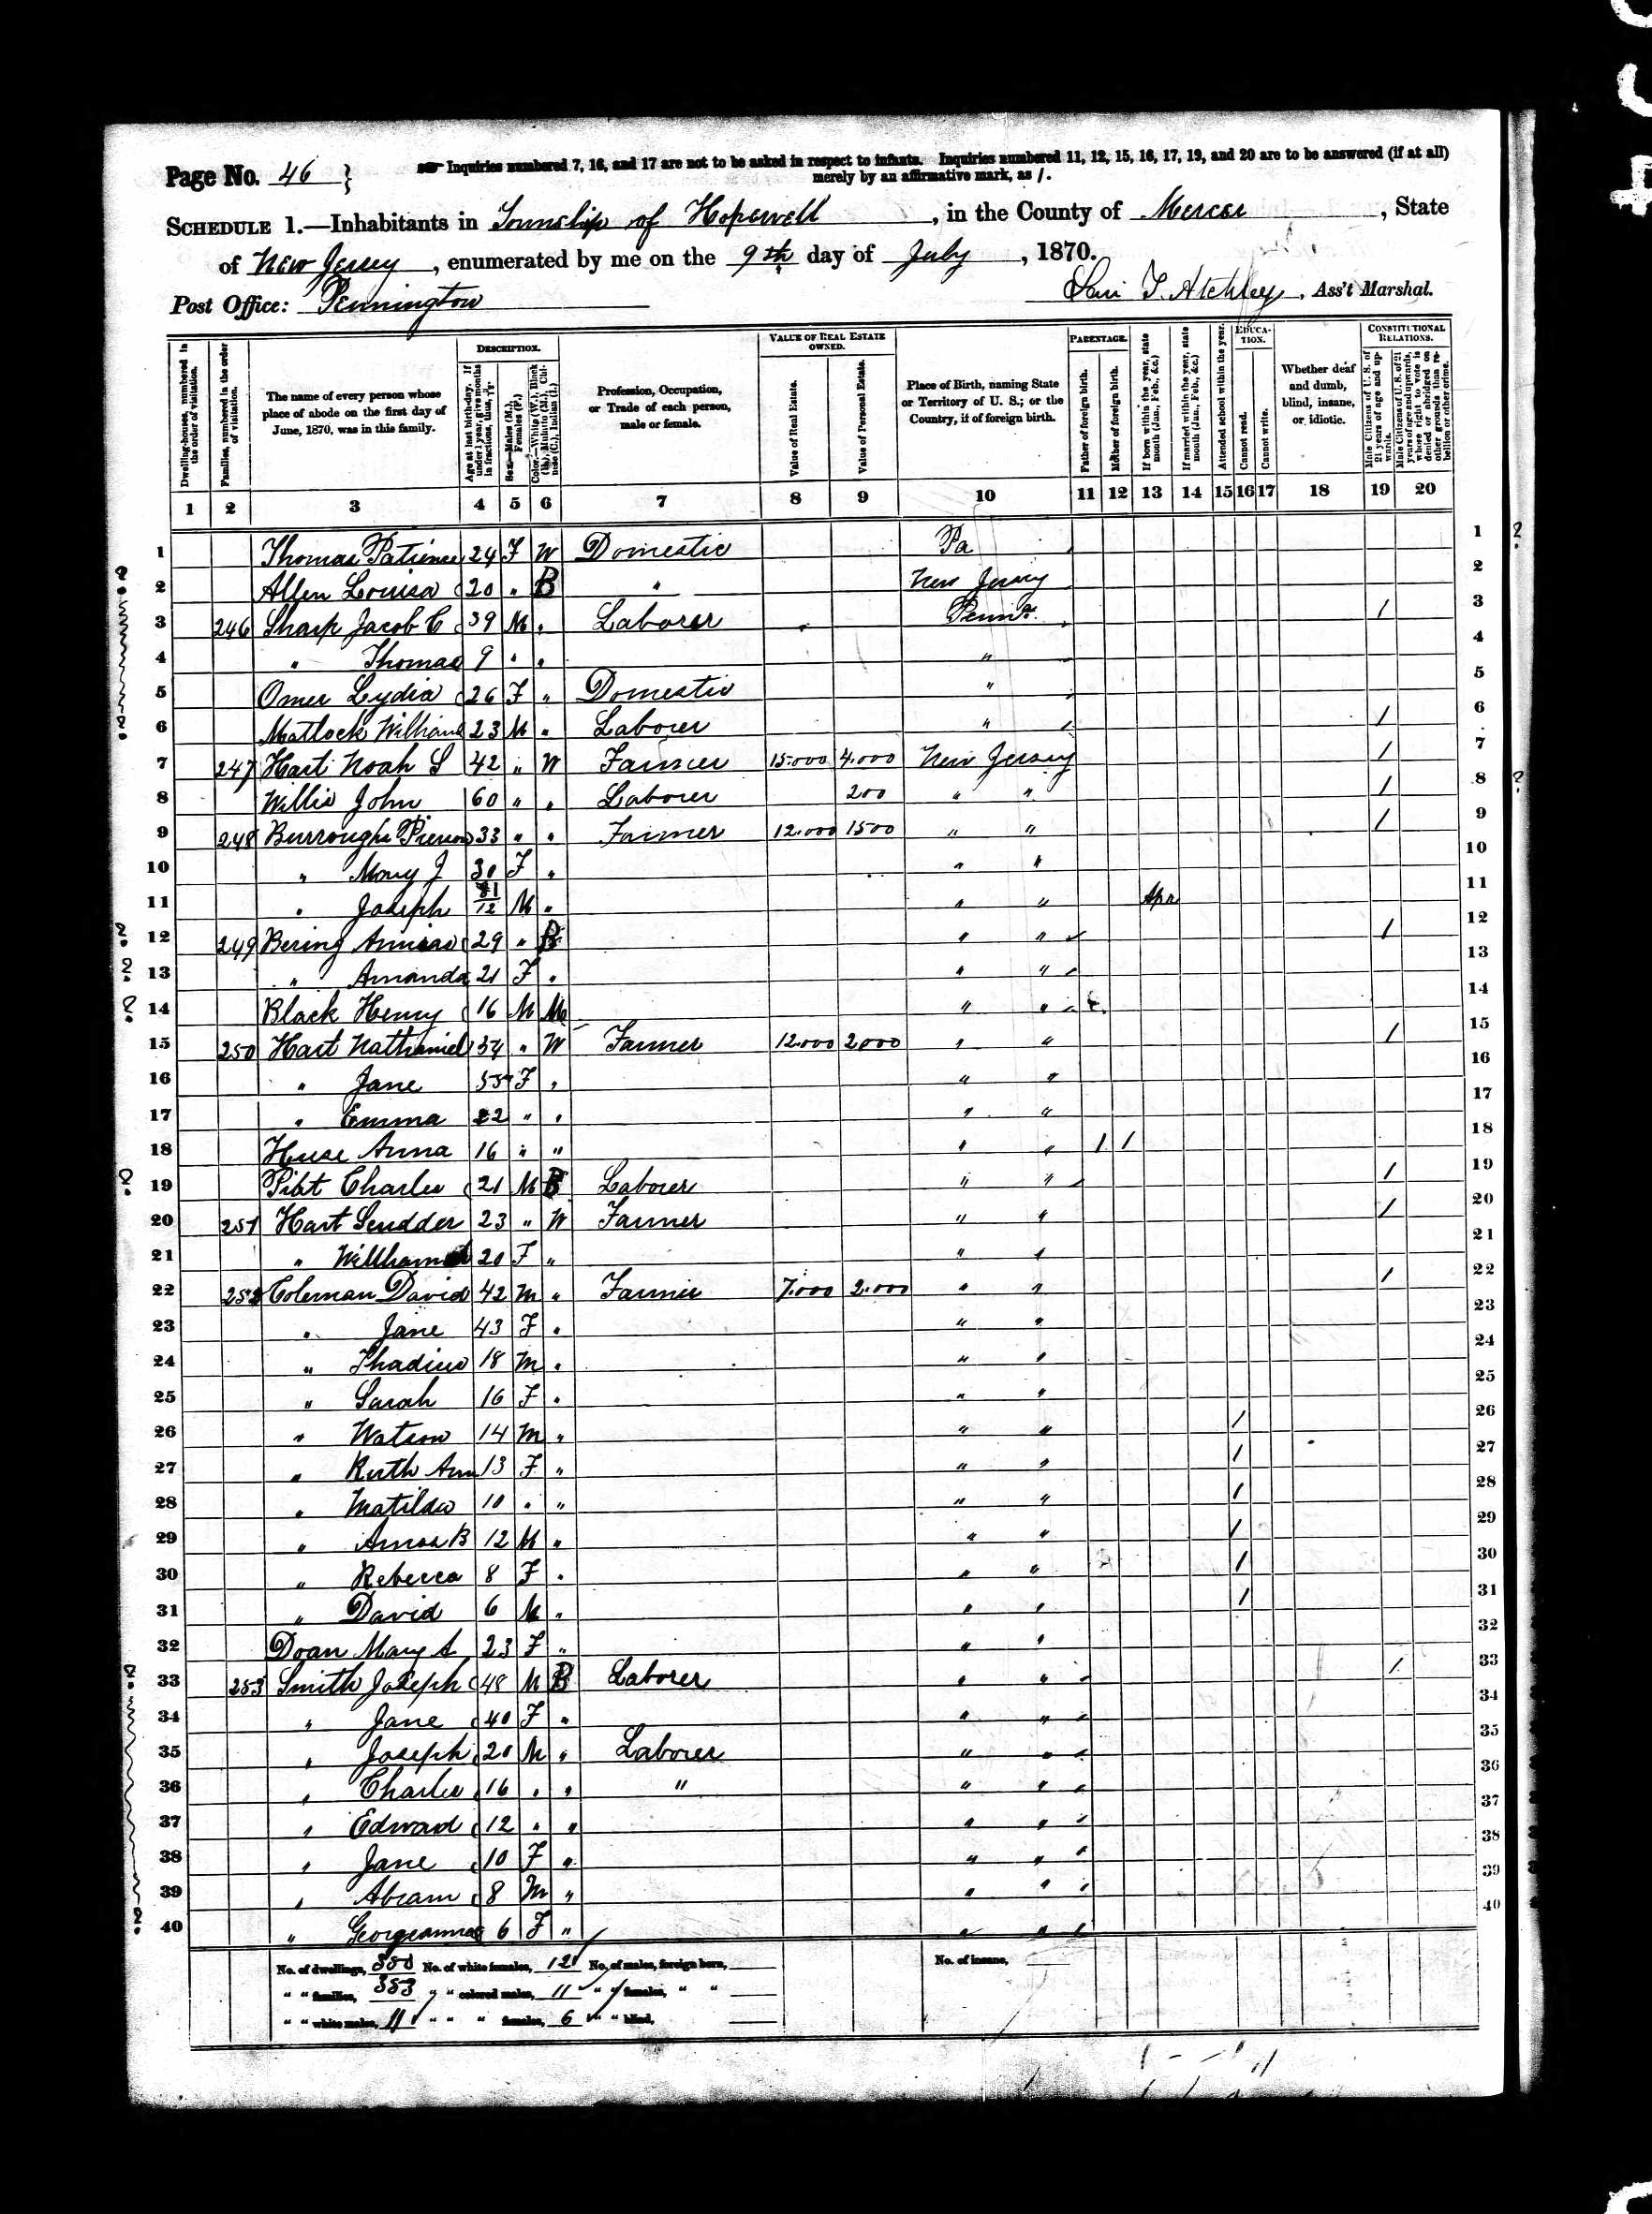 Page No. 46
Inquiries numbered 7, 16, and 17 are not to be asked in respect to infants. Inquiries numbered 11, 12, 15, 16, 17, 19, and 20 are to be answered (if at all)
merely by an affirmative mark, as /.
SCHEDULE 1.—Inhabitants in Township of Hopewell, in the County of Mercer, State
of New Jersey, enumerated by me on the 9th day of July, 1870.
Post Office: Pennington
T. Atchley, Ass't Marshal.
Dwelling-houses, numbered in the order of visitation.
Families, numbered in the order of visitation.
The name of every person whose place of abode on the first day of June, 1870, was in this family.
DESCRIPTION.
Age at last birth-day. If under 1 year, give months in fractions, thus,
Sex.—Males (M.), Females (F.)
Color.—White (W.), Black (B.), Mulatto (M.), Chinese (C.), Indian (I.)
Profession, Occupation, or Trade of each person, male or female.
VALUE OF REAL ESTATE OWNED.
Value of Real Estate.
Value of Personal Estate.
Place of Birth, naming State or Territory of U. S.; or the Country, if of foreign birth.
PARENTAGE.
Father of foreign birth.
Mother of foreign birth.
If born within the year, state month (Jan., Feb., &c.)
If married within the year, state month (Jan., Feb., &c.)
Attended school within the year.
EDUCATION.
Cannot read.
Cannot write.
Whether deaf and dumb, blind, insane, or idiotic.
CONSTITUTIONAL RELATIONS.
Male Citizens of U. S. of 21 years of age and upwards.
Male Citizens of U. S. of 21 years of age and upwards, whose right to vote is denied or abridged on other grounds than rebellion or other crime.
1 2 3 4 5 6 7 8 9 10 11 12 13 14 15 16 17 18 19 20
1 Thomas Patience 24 F W Domestic Pa 1
2 Allen Louisa 20 " B " New Jersey 2
3 246 Sharp Jacob C 39 M " Laborer Penn 1 3
4 " Thomas 9 " " " 4
5 Omer Lydia 26 F " Domestic " 5
6 Matlock William 23 M " Laborer " 1 6
7 247 Hart Noah S 42 " W Farmer 15.000 4.000 New Jersey 1 7
8 Willis John 60 " " Laborer 200 " " 1 8
9 248 Burroughs Pierson 33 " " Farmer 12.000 1500 " " 1 9
10 " Mary J 30 F " " " 10
11 " Joseph /12 M " " " Apr 11
12 249 Bering 29 " B " " 1 12
13 " Amanda 21 F " " " 13
14 Black Henry 16 M M " " 14
15 250 Hart Nathaniel 34 " W Farmer 12.000 2000 " " 1 15
16 " Jane F " " " 16
17 " Emma 22 " " " " 17
18 Huse Anna 16 " " " " 1 1 18
19 Charles 21 M B Laborer " " 1 19
20 251 Hart Scudder 23 " W Farmer " " 1 20
21 " 20 F " " " 21
22 252 Coleman David 42 M " Farmer 7.000 2.000 " " 1 22
23 " Jane 43 F " " " 23
24 " Thadius 18 M " " " 24
25 " Sarah 16 F " " " 25
26 " Watson 14 M " " " 1 26
27 " Ruth Ann 13 F " " " 1 27
28 " Matilda 10 " " " " 1 28
29 " Amos B 12 M " " " 1 29
30 " Rebecca 8 F " " " 1 30
31 " David 6 M " " " 1 31
32 Doan Mary A 23 F " " " 32
33 253 Smith Joseph 48 M B Laborer " " 1 33
34 " Jane 40 F " " " 34
35 " Joseph 20 M " Laborer " " 35
36 " Charles 16 " " " " " 36
37 " Edward 12 " " " " 37
38 " Jane 10 F " " " 38
39 " Abram 8 M " " " 39
40 " Georgeanna 6 F " " " 40
No. of dwellings, 350 No. of white females, 12 No. of males, foreign born, No. of insane,
" " families, 353 " " colored males, 11 " " females, " "
" " white males, 11 " " " females, 6 " " blind,